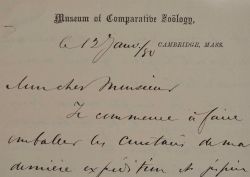 Museum of Comparative Zoölogy,
CAMBRIDGE, MASS.
le 12 Janv/80
Mon cher Monsieur
Je commence à faire
emballer les crustacés de ma
dernière expédition et j'espère